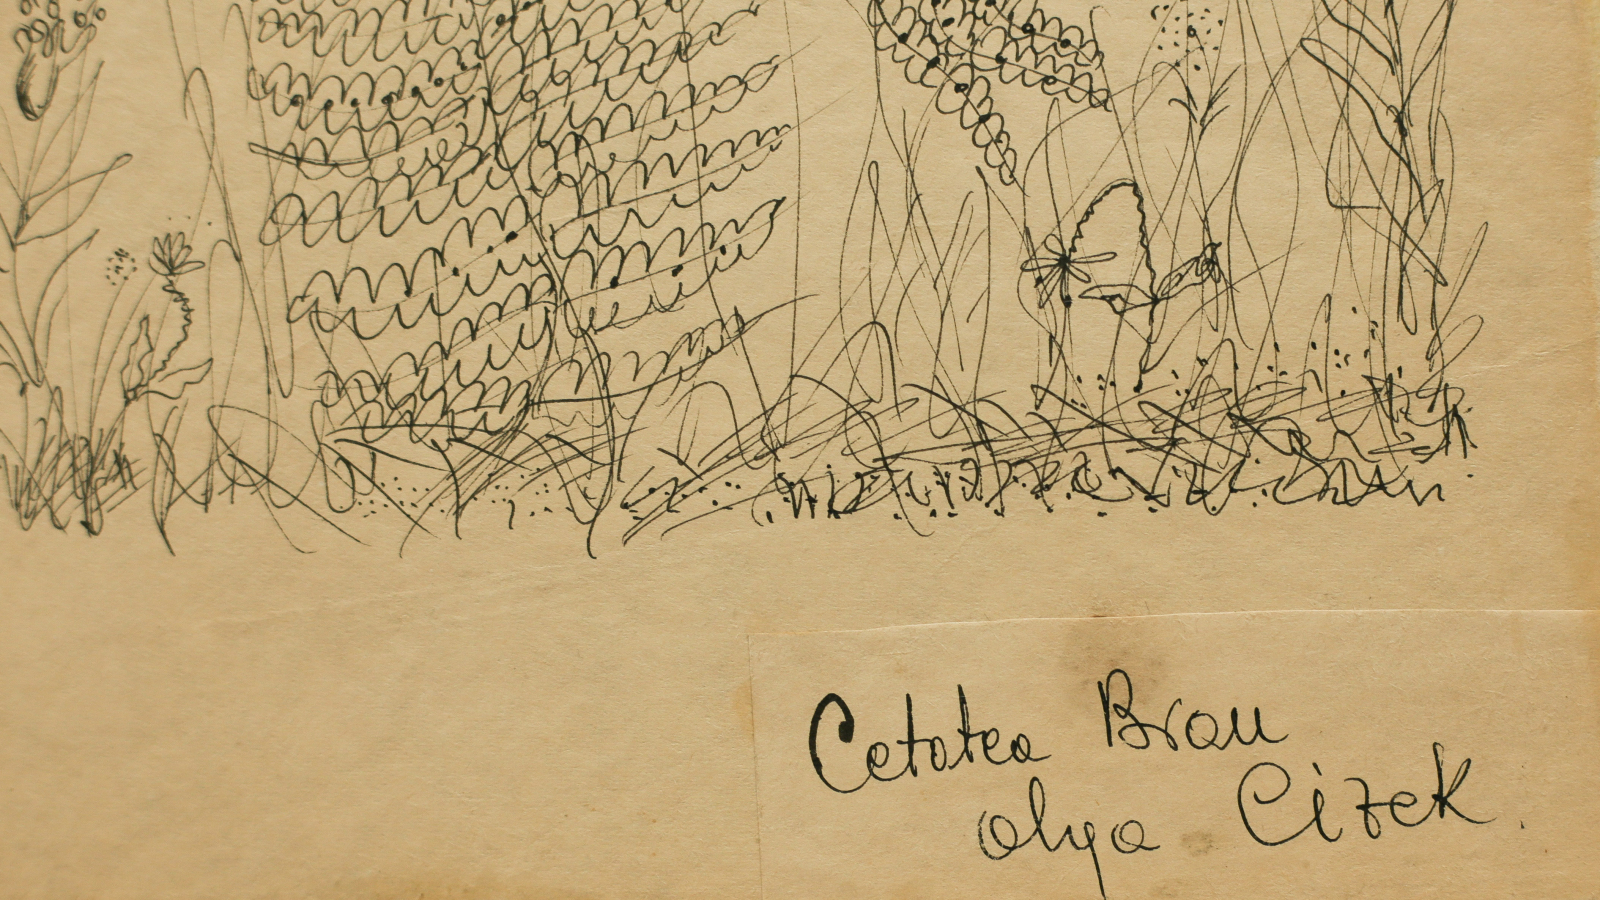 Cetatea Bran
Olga Cizek